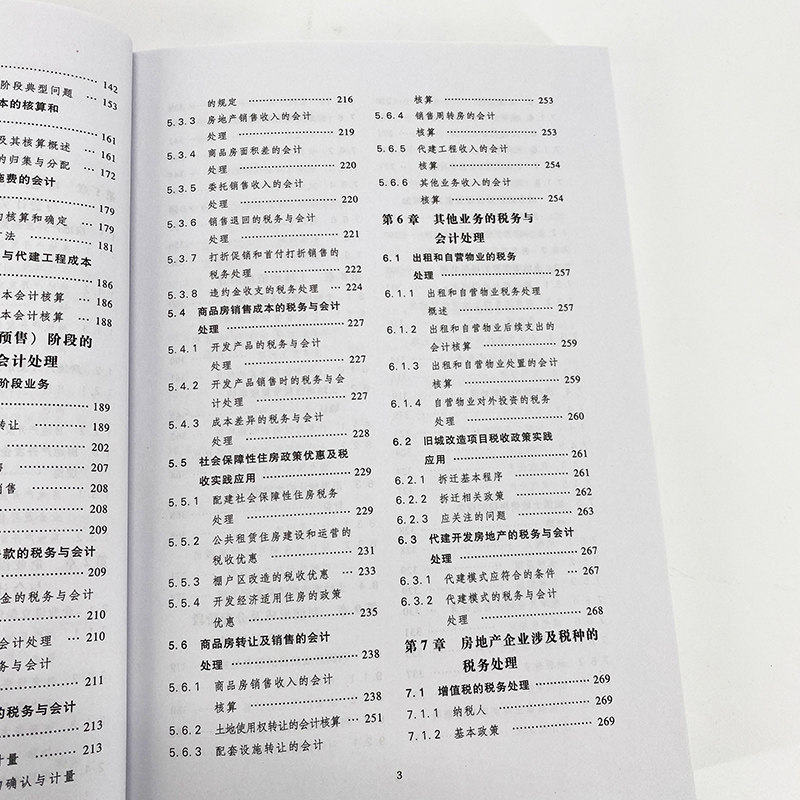 142
阶段典型问题 … 153
本的核算和
161
及其核算概述 … 161
的归集与分配 … 172
施费的会计
179
的核算和确定
179
方法 … 181
与代建工程成本
186
本会计核算 … 186
本会计核算 … 188
预售）阶段的
会计处理
阶段业务
189
转让 … 189
202
207
销售 … 208
208
209
款的税务与会计
209
金的税务与会计
210
会计处理 … 210
税务与会计
211
的税务与会计
213
计量 … 213
的确认与计量
的规定 … 216
5.3.3 房地产销售收入的会计
处理 … 219
5.3.4 商品房面积差的会计
处理 … 220
5.3.5 委托销售收入的会计
处理 … 220
5.3.6 销售退回的税务与会计
处理 … 221
5.3.7 打折促销和首付打折销售的
税务处理 … 222
5.3.8 违约金收支的税务处理 … 224
5.4 商品房销售成本的税务与会计
处理 … 227
5.4.1 开发产品的税务与会计
处理 … 227
5.4.2 开发产品销售时的税务与会
计处理 … 227
5.4.3 成本差异的税务与会计
处理 … 228
5.5 社会保障性住房政策优惠及税
收实践应用 … 229
5.5.1 配建社会保障性住房税务
处理 … 229
5.5.2 公共租赁住房建设和运营的
税收优惠 … 231
5.5.3 棚户区改造的税收优惠 … 233
5.5.4 开发经济适用住房的政策
优惠 … 235
5.6 商品房转让及销售的会计
处理 … 238
5.6.1 商品房销售收入的会计
核算 … 238
5.6.2 土地使用权转让的会计核算 … 251
5.6.3 配套设施转让的会计
核算 … 253
5.6.4 销售周转房的会计
核算 … 253
5.6.5 代建工程收入的会计
核算 … 254
5.6.6 其他业务收入的会计
核算 … 254
第6章 其他业务的税务与
会计处理
6.1 出租和自营物业的税务
处理 … 257
6.1.1 出租和自营物业税务处理
概述 … 257
6.1.2 出租和自营物业后续支出的
会计核算 … 259
6.1.3 出租和自营物业处置的会计
核算 … 259
6.1.4 自营物业对外投资的税务
处理 … 260
6.2 旧城改造项目税收政策实践
应用 … 261
6.2.1 拆迁基本程序 … 261
6.2.2 拆迁相关政策 … 262
6.2.3 应关注的问题 … 263
6.3 代建开发房地产的税务与会计
处理 … 267
6.3.1 代建模式应符合的条件 … 267
6.3.2 代建模式的税务与会计
处理 … 268
第7章 房地产企业涉及税种的
税务处理
7.1 增值税的税务处理 … 269
7.1.1 纳税人 … 269
7.1.2 基本政策 … 269
3